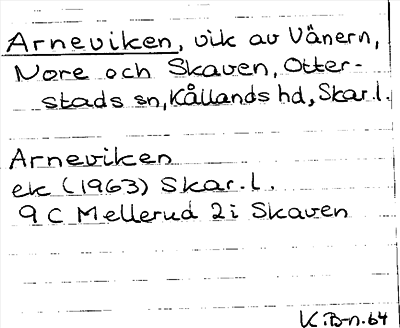 Arneviken, vik av Vänern,
Nore och Skaven, Otter-
stads sn, Kållands hd, Skar.l.
Arneviken
ek (1963) Skar.l.
9C Mellerud 2i Skaven
K.B-n.64